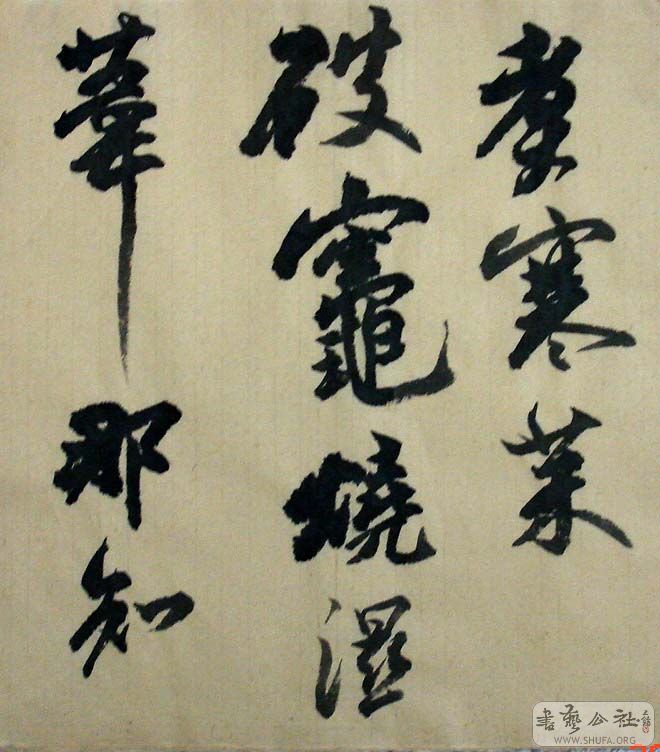 煮寒菜
破竈燒濕
葦那知
書藝公社
WWW.SHUFA.ORG